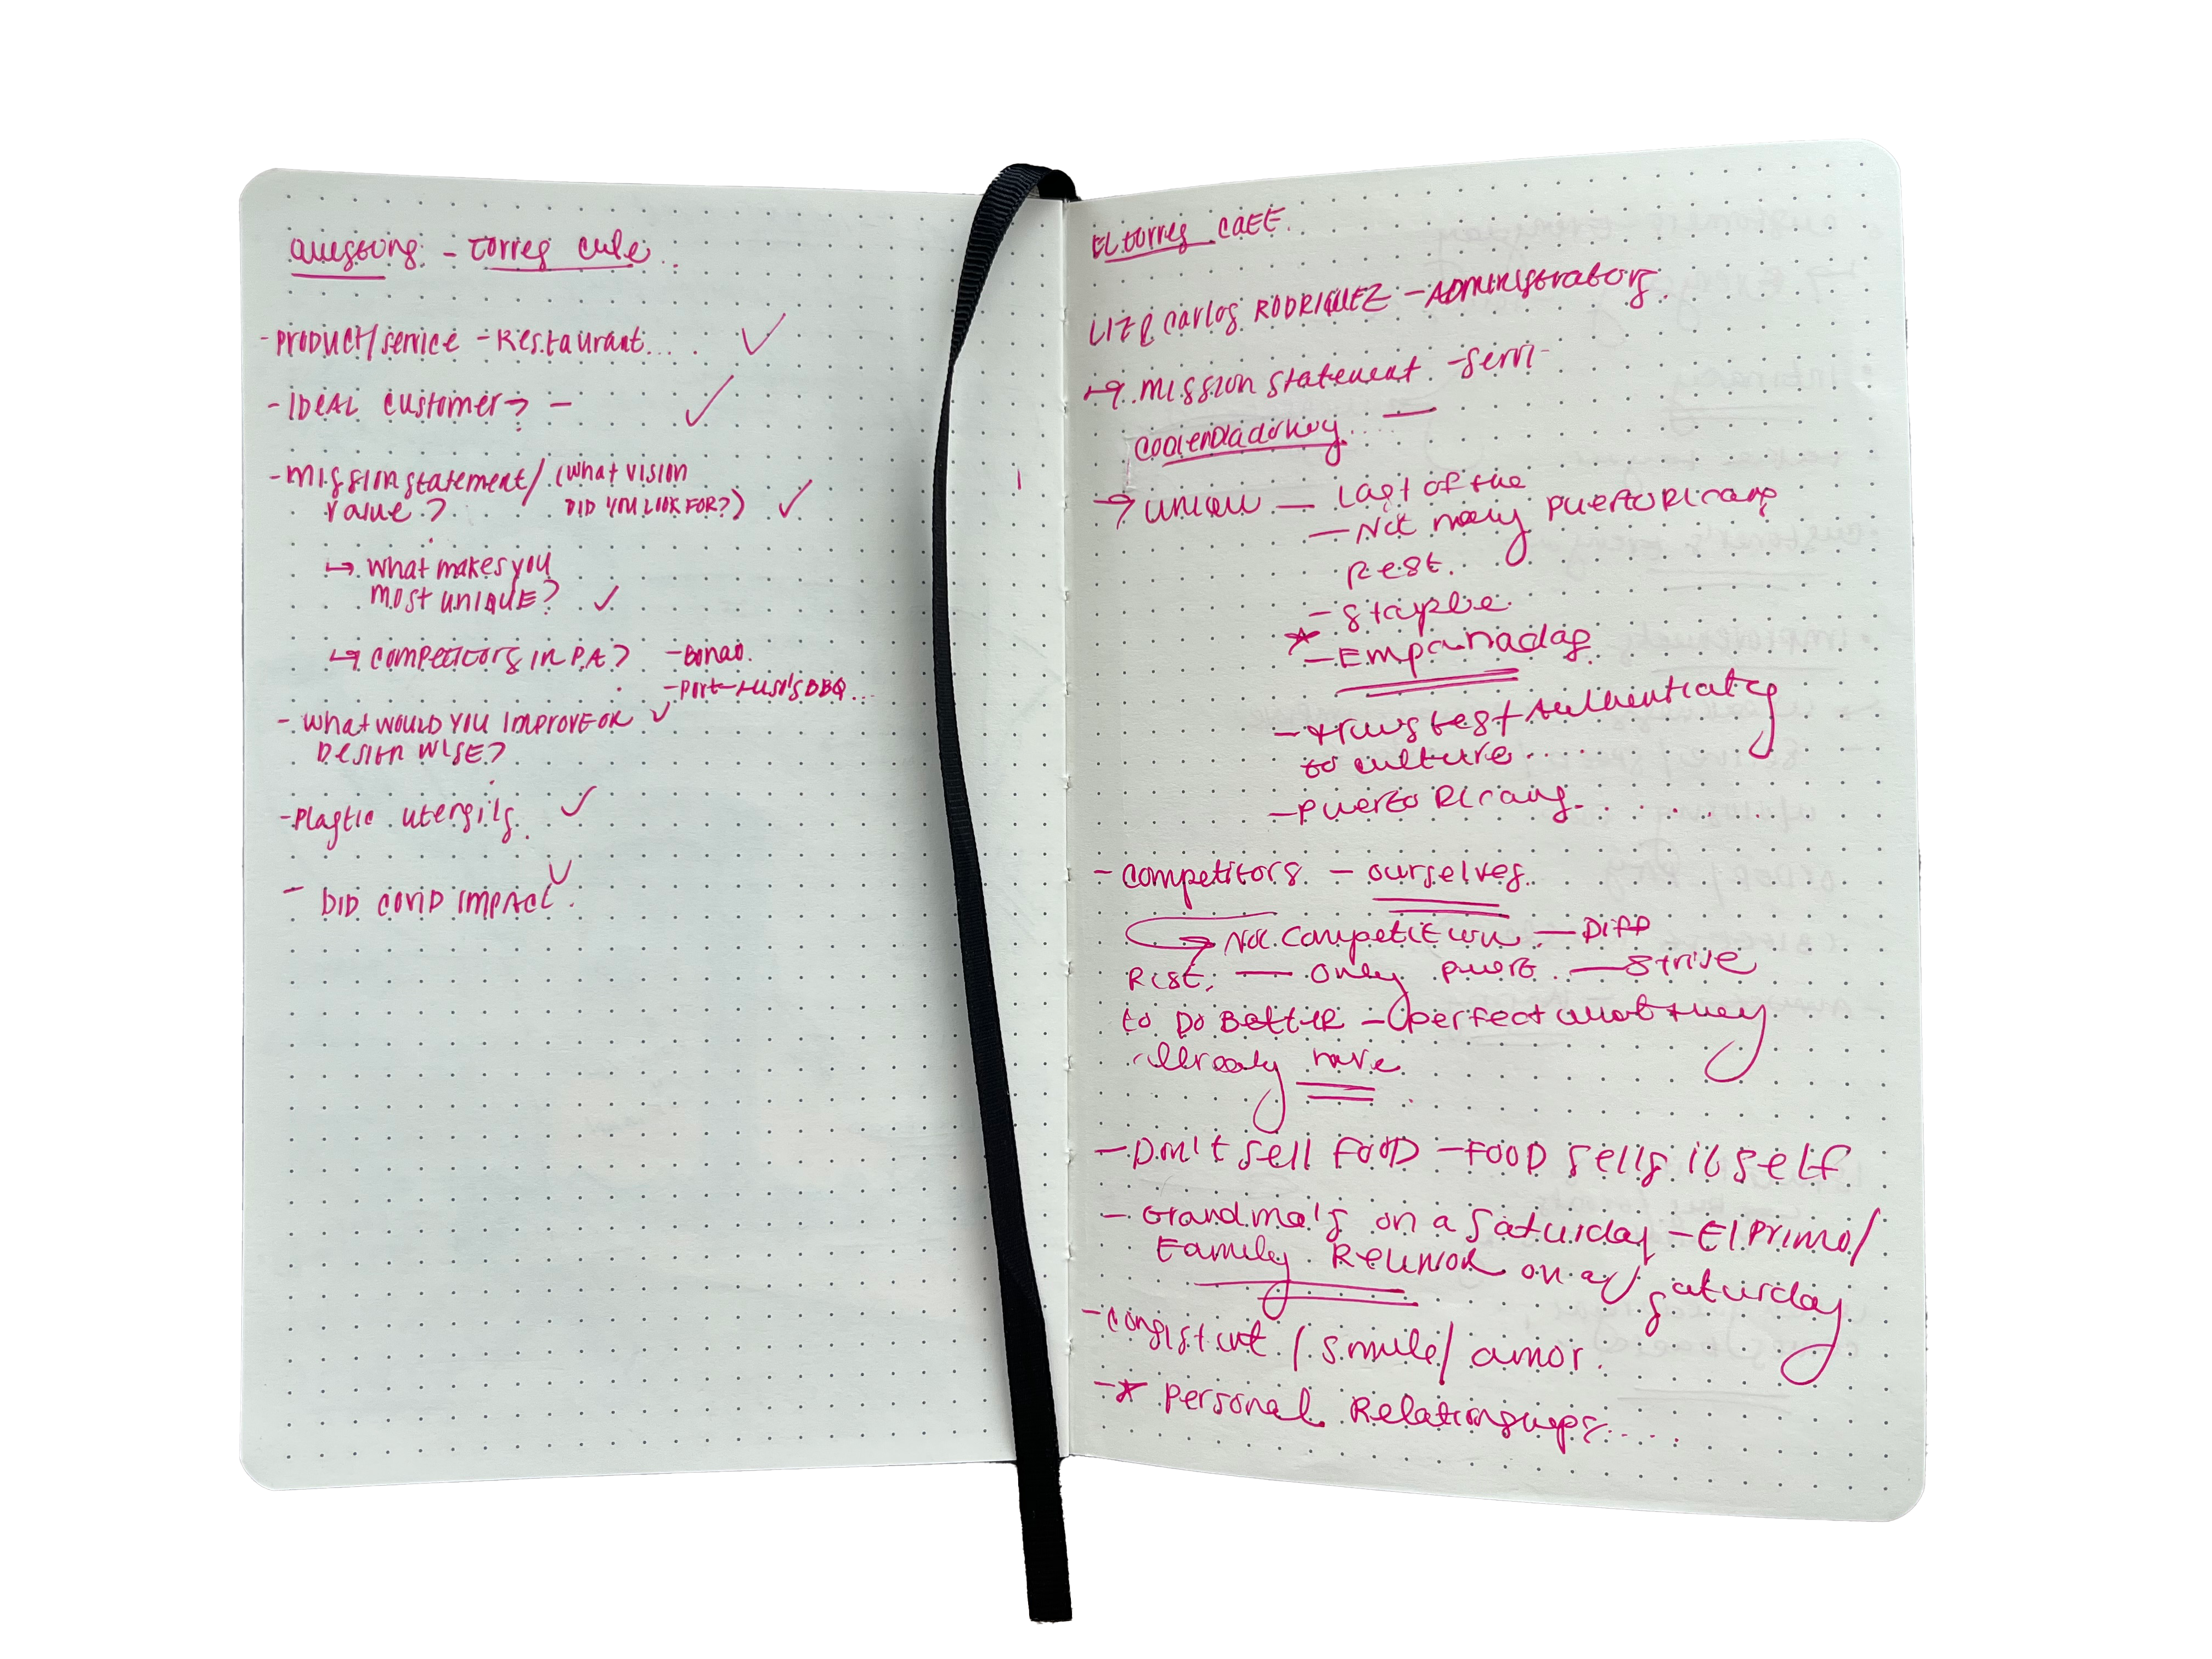 Questions - Torres cafe..
- PRODUCT/service - Restaurant...
- IDEAL customer? -
- Mission statement/ (what vision
value? DID YOU LOOK FOR?)
↳ what makes you
MOST UNIQUE?
↳ competitors in PA? - Bonao.
- Port-Rico's BBQ...
- What WOULD YOU IMPROVE ON
DESIGN WISE?
- Plastic utensils.
- DID COVID IMPACT.
EL torres CAFE.
Carlos RODRIQUEZ - ADMINistrators.
↳ Mission statement - Servi-
→ unique — Last of the
— Not many PUERTO Ricans
Rest.
- Staple
* — Empanadas
to culture
- PUERTO Ricans.
- Competitors - ourselves.
Not competition — Diff
Rest. — only Puert. — Strive
to DO BETTER - (perfect what they
already have
- Don't Sell FOOD - FOOD sells itself
- Grandma's on a Saturday - El Primo/
Family Reunion on a/ Saturday
- consistent / Smile/ amor.
- * Personal Relationships....